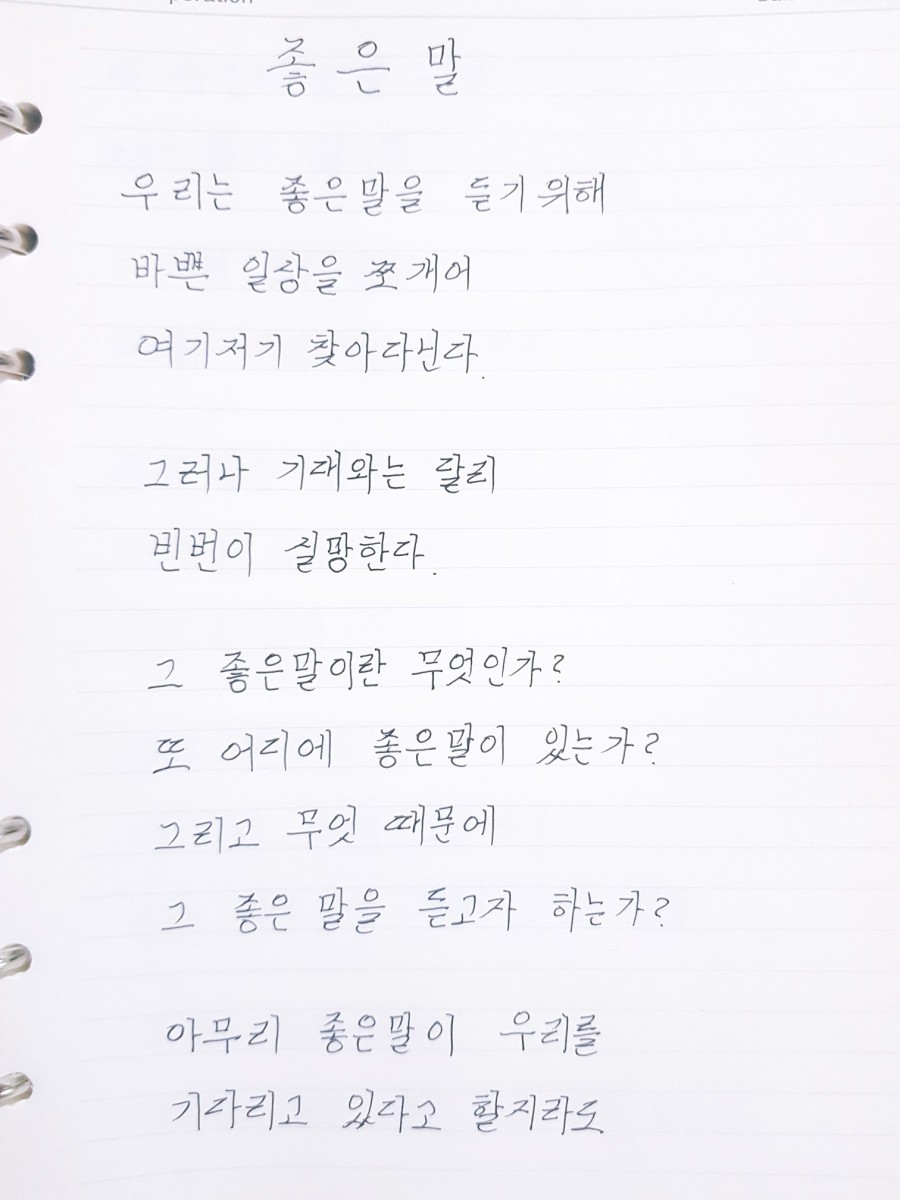 좋은 말
우리는 좋은말을 듣기 위해
바쁜 일상을 쪼개어
여기저기 찾아다닌다.
그러나 기대와는 달리
빈번이 실망한다.
그 좋은말이란 무엇인가?
또 어디에 좋은말이 있는가?
그리고 무엇 때문에
그 좋은 말을 듣고자 하는가?
아무리 좋은말이 우리를
기다리고 있다고 할지라도